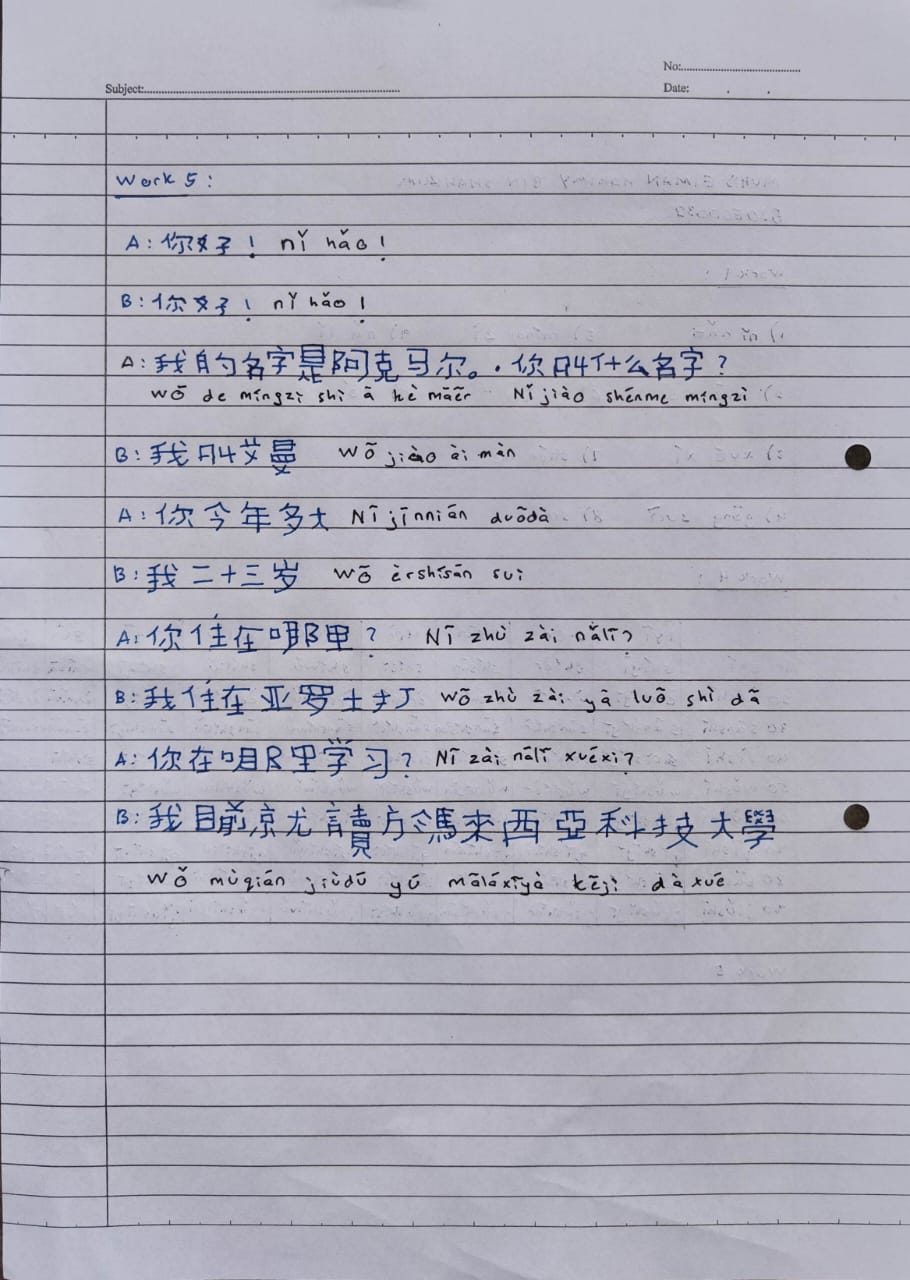 No:
Subject:
Date:
Work 5:
A: 你好! nǐ hǎo!
B: 你好! nǐ hǎo!
A: 我的名字是阿克马尔。. 你叫什么名字?
wǒ de míngzì shì ā kè mǎěr Nǐ jiào shénme míngzì
B: 我叫艾曼 wǒ jiào ài màn
A: 你今年多大 Nǐ jīnnián duōdà
B: 我二十三岁 wǒ èrshísān suì
A: 你住在哪里? Nǐ zhù zài nǎlǐ?
B: 我住在亚罗士打 wǒ zhù zài yà luō shì dǎ
A: 你在哪里学习? Nǐ zài nǎlǐ xuéxí?
B: 我目前就讀於馬來西亞科技大學
wǒ mùqián jiùdú yú mǎláixīyà kējì dàxué